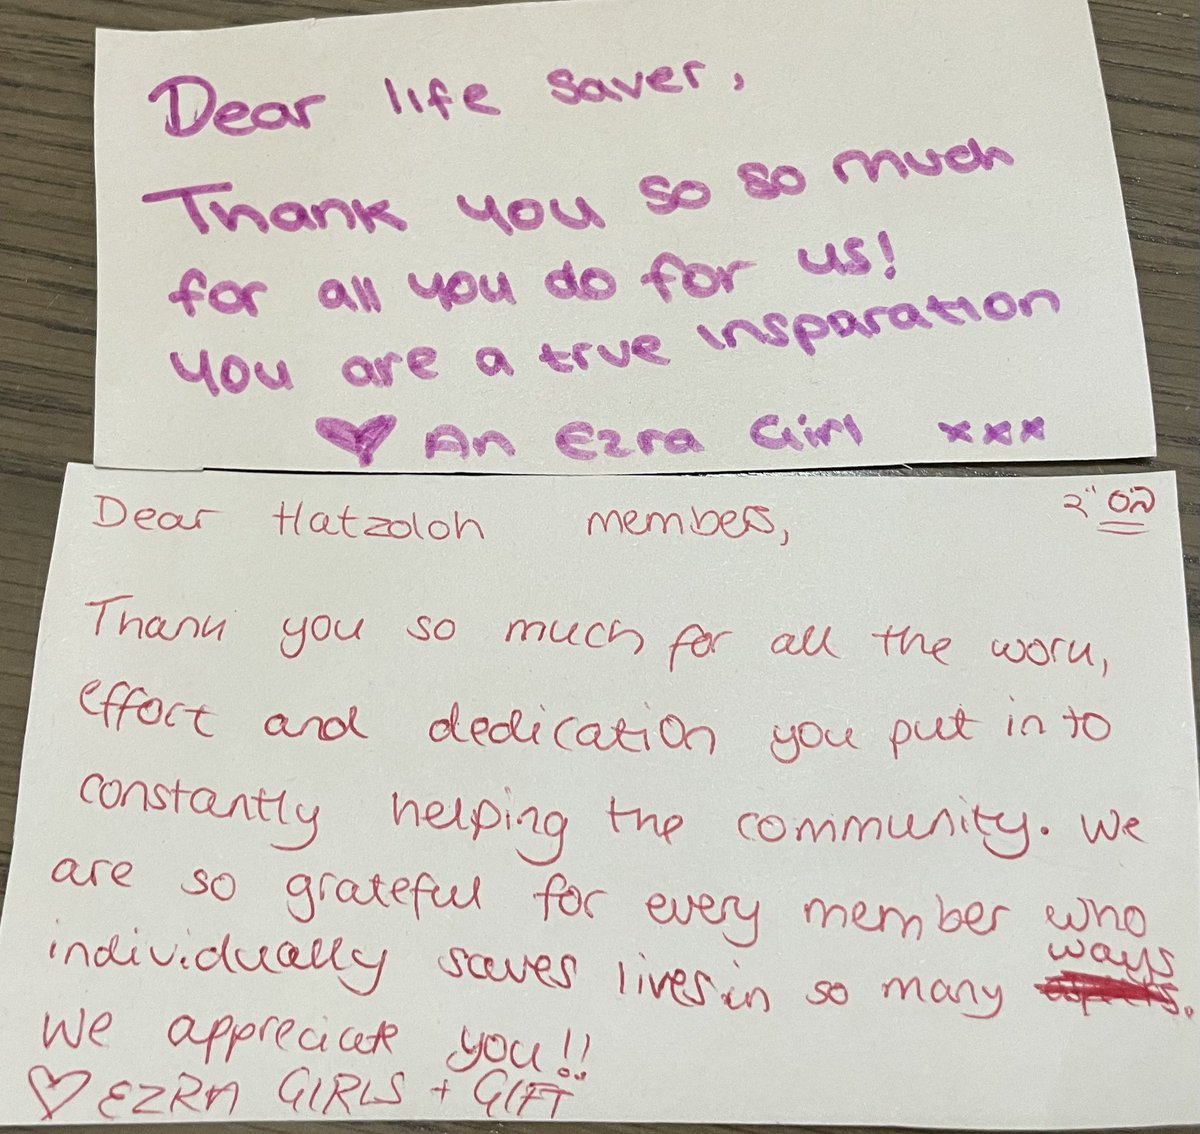 Dear life saver,
Thank you so so much
for all you do for us!
you are a true insparation
♥ An Ezra Girl xxx
בס"ד
Dear Hatzoloh members,
Thank you so much for all the work,
effort and dedication you put in to
constantly helping the community. We
are so grateful for every member who
individually saves lives in so many ways.
We appreciate you!!
♡ EZRA GIRLS + GIFT